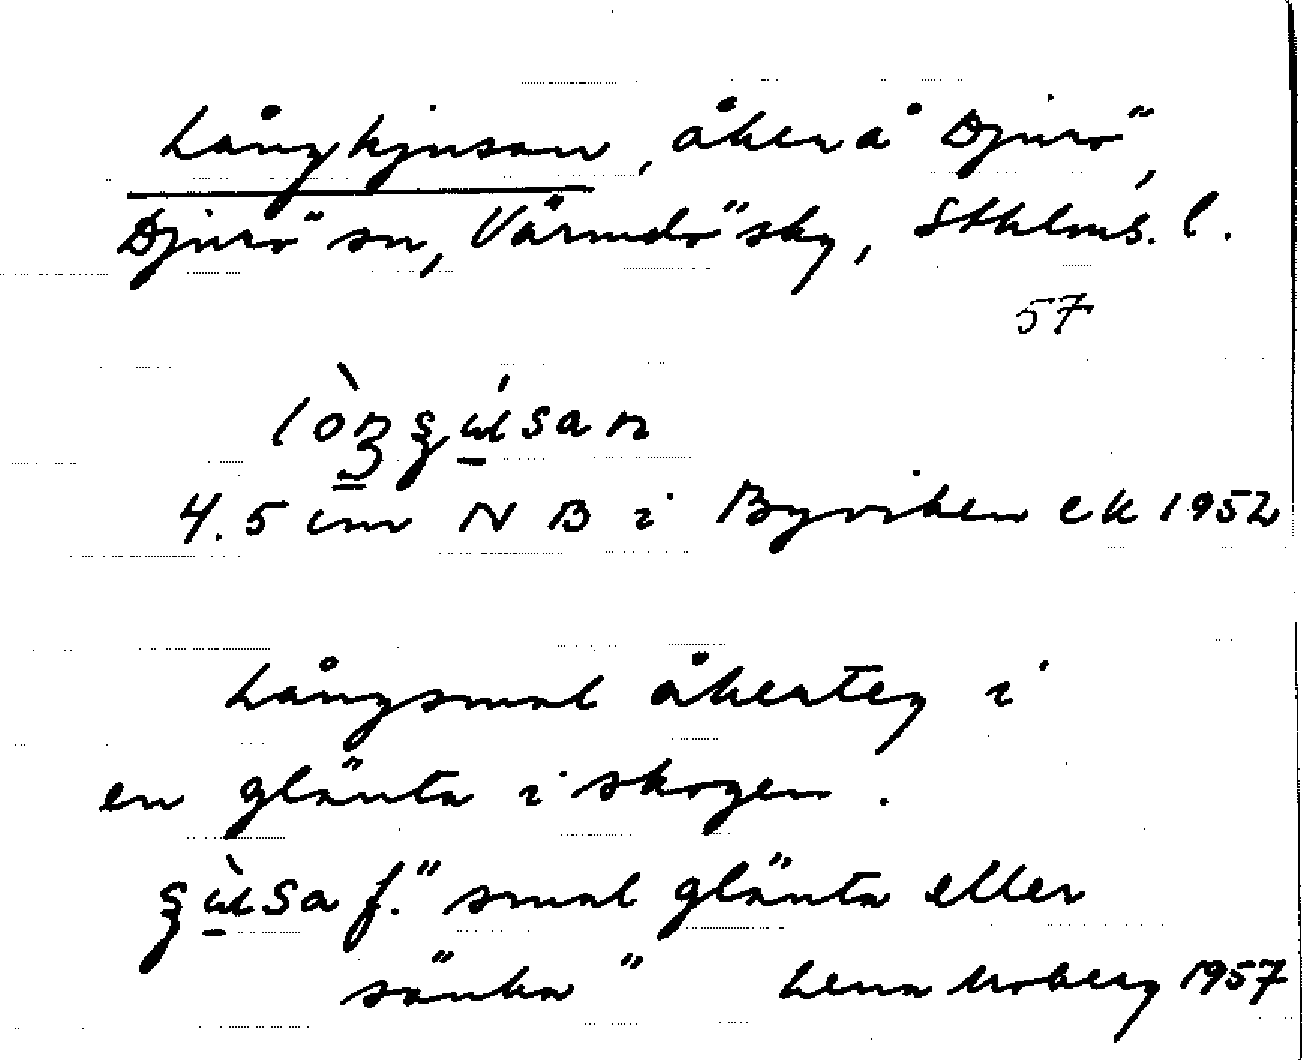 Långkjusan, åker å Djurö,
Djurö sn, Värmdö sky, Sthlms. l.
57
4.5 cm N B i Byviken ek 1952
Långsmal åkerteg i
en glänta i skogen.
f. "smal glänta eller
sänka" Lena Moberg 1957